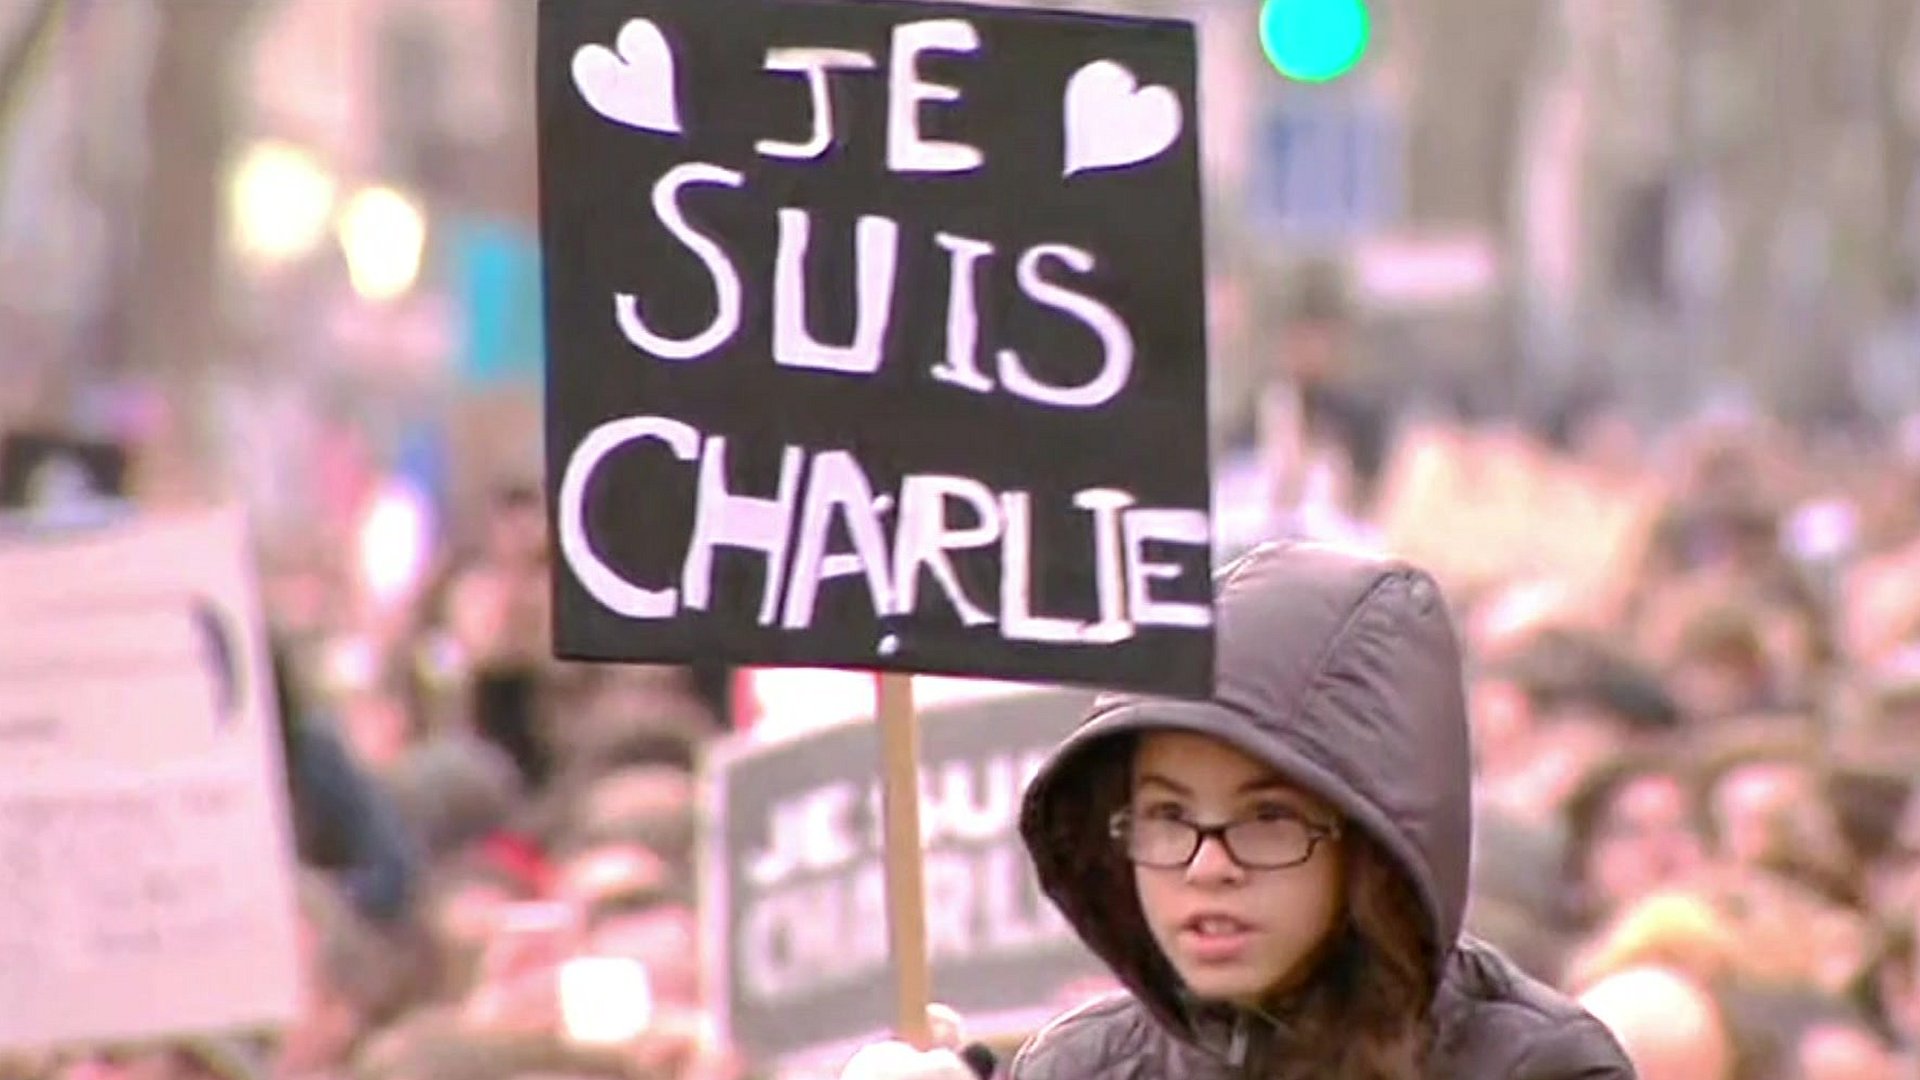 JE
SUIS
CHARLIE
JE SUI
CHARL